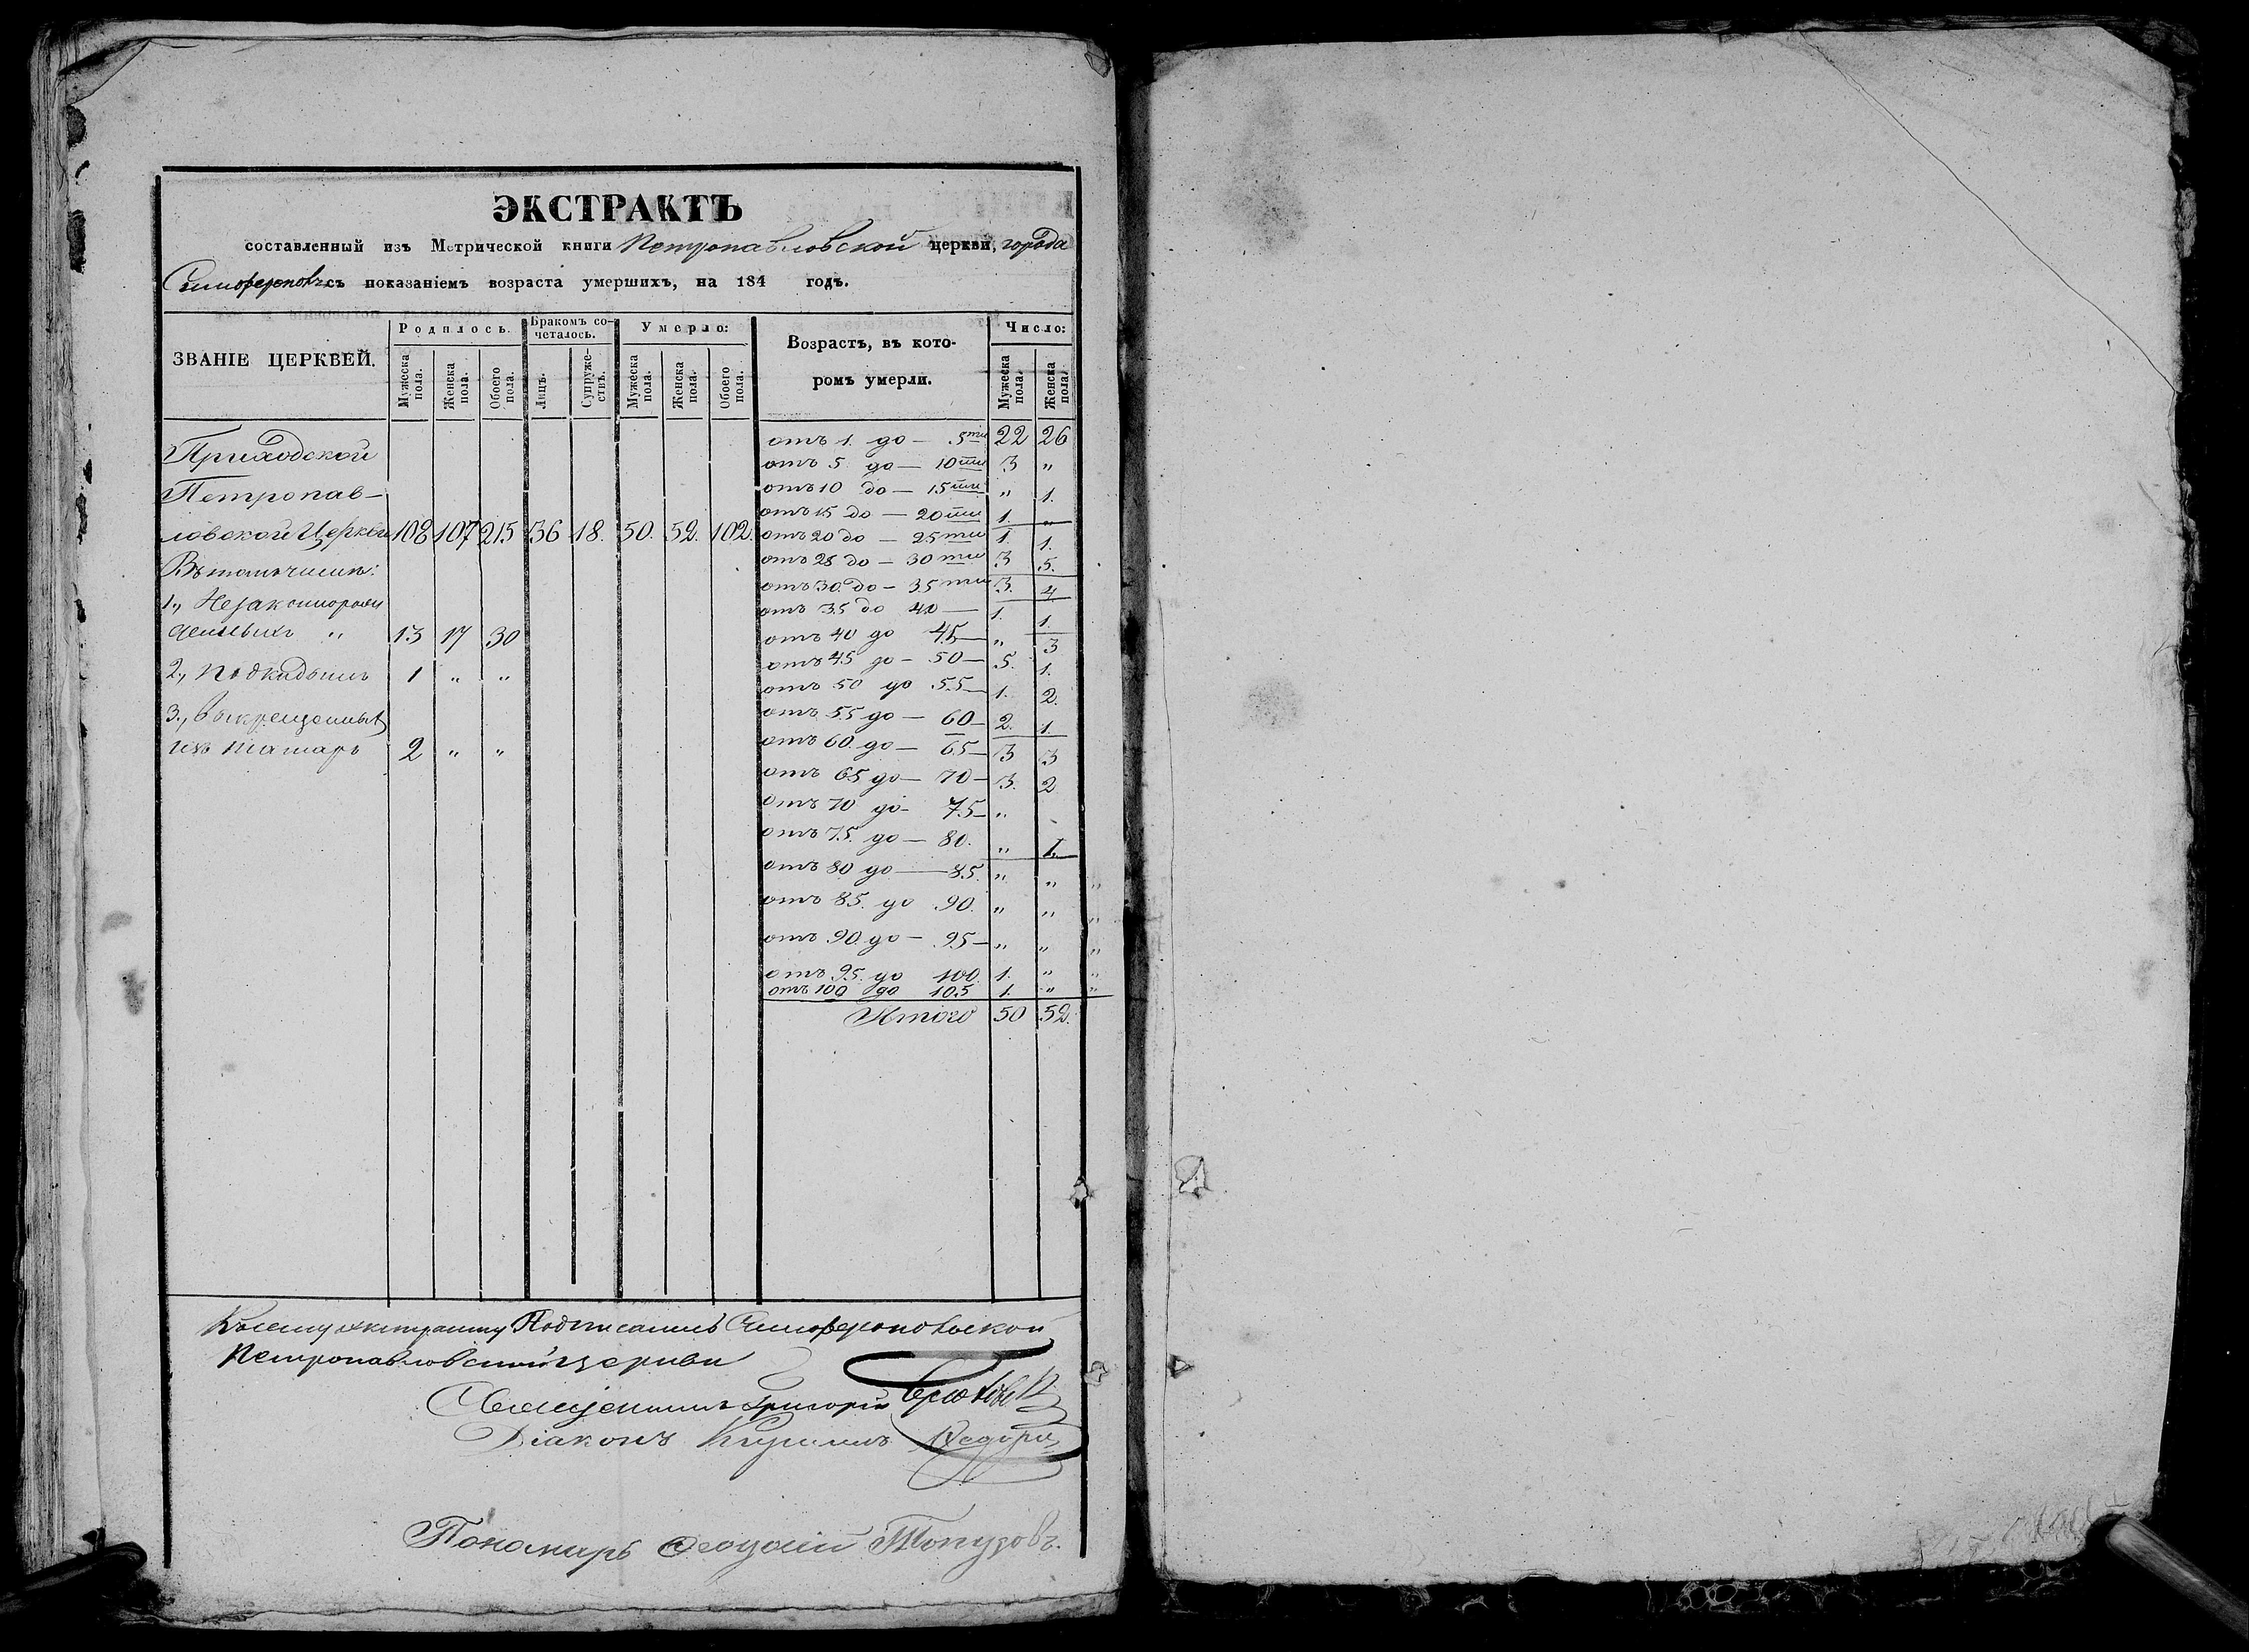 ЭКСТРАКТЪ
составленный изъ Метрической книги Петропавловской церкви, города
Симферополя съ показаніемъ возраста умершихъ, на 184 годъ.
ЗВАНІЕ ЦЕРКВЕЙ.
Родилось.
Бракомъ со-
четалось.
Умерло:
Возрастъ, въ кото-
ромъ умерли.
Число:
Мужеска пола.
Женска пола.
Обоего пола.
Лицъ.
Супружествъ.
Мужеска пола.
Женска пола.
Обоего пола.
Мужеска пола.
Женска пола.
Приходской
Петропав-
ловской Церкви 108 107 215 36 18. 50. 52. 102.
Въ томъ числѣ:
1., Незаконнорож
денныхъ " 13 17 30
2., Подкидышъ 1 " "
3., выкрещенныхъ
изъ татаръ 2 " "
отъ 1. до — 5ти 22 26
отъ 5 до — 10ти 3 "
отъ 10 до — 15ти " 1.
отъ 15 до — 20ти 1. "
отъ 20 до — 25ти 1. 1.
отъ 25 до — 30ти 3 5.
отъ 30 до — 35ти 3. 4.
отъ 35 до 40 — 1. 1.
отъ 40 до 45 — " 3
отъ 45 до — 50 — 5. 1.
отъ 50 до 55 — 1. 2.
отъ 55 до — 60 — 2. 1.
отъ 60. до — 65 — 3 3
отъ 65 до — 70 — 3. 2
отъ 70 до — 75 — "
отъ 75. до — 80. " 1.
отъ 80 до — 85. " " "
отъ 85. до 90. " " "
отъ 90. до — 95 — " " "
отъ 95. до 100. 1. " "
отъ 100 до 105 1. " "
Итого 50 52.
Къ сему экстракту Подписались Симферопольской
Петропавловской церкви
Священникъ Григорій
Діаконъ Кирилъ
Пономарь Феодосій Топузовъ.